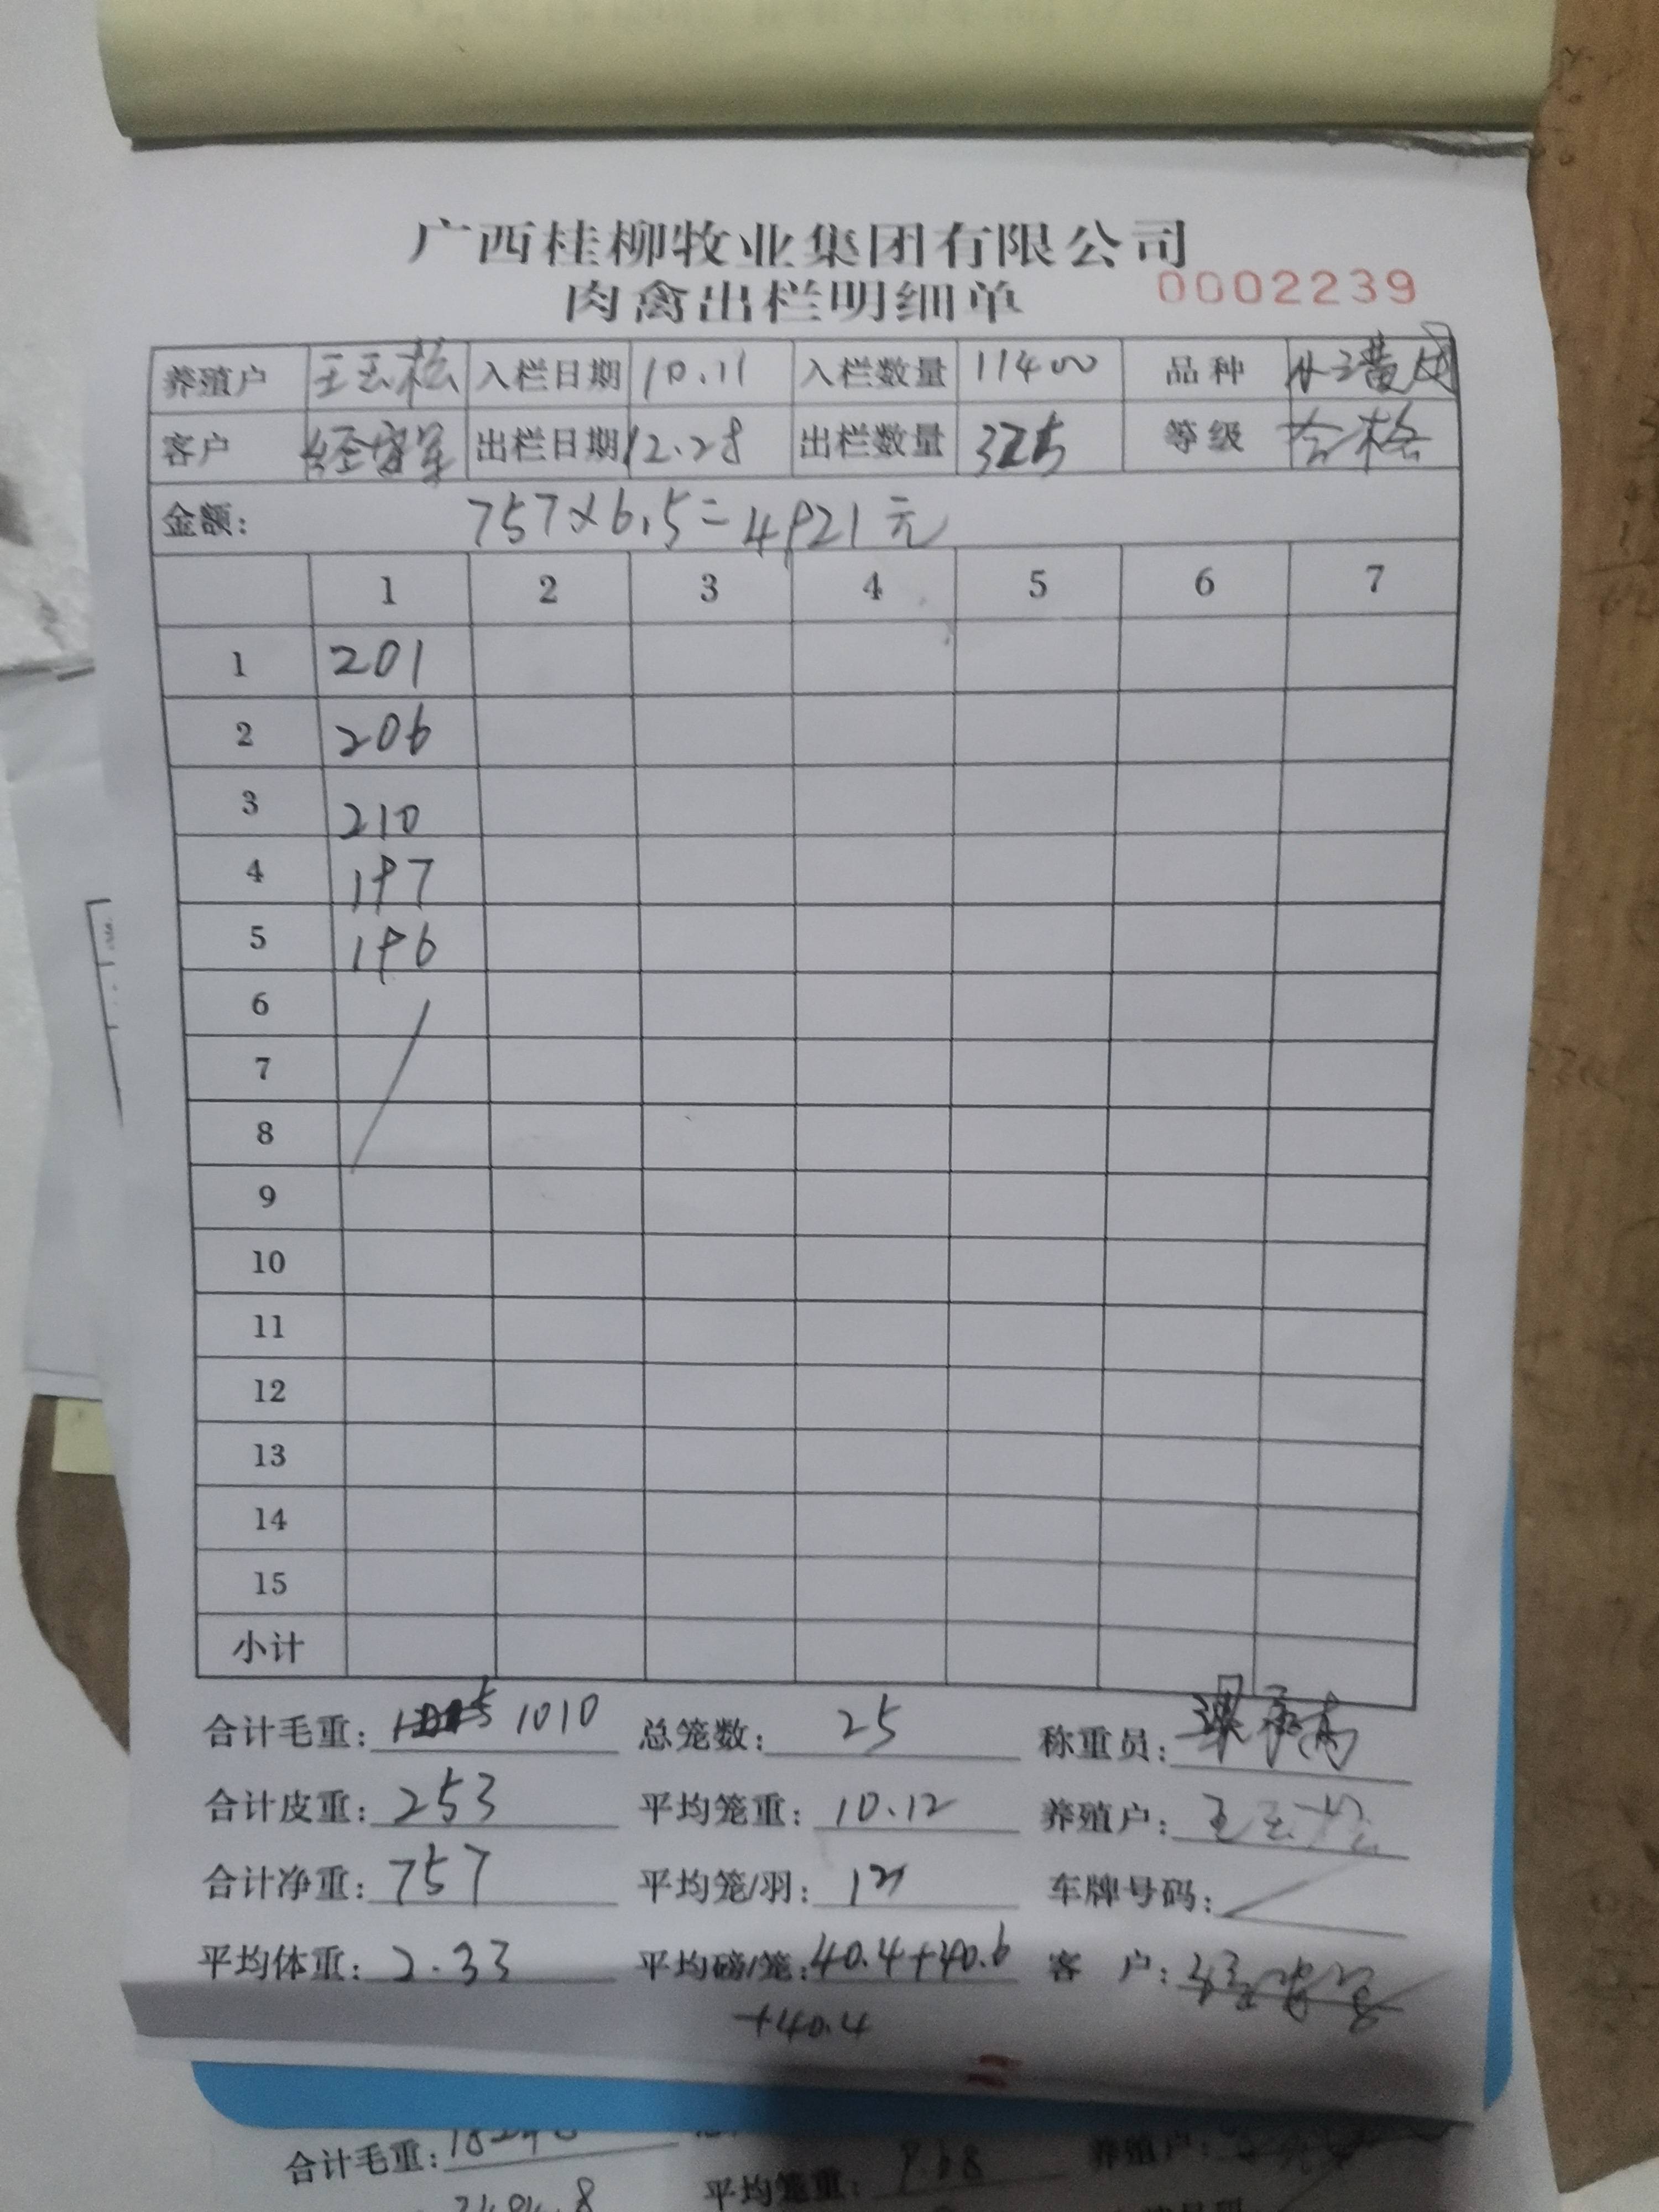 广西桂柳牧业集团有限公司
肉禽出栏明细单 0002239
养殖户 王玉松 入栏日期 10.11 入栏数量 11400 品种
客户 出栏日期 12.28 出栏数量 325 等级 合格
金额: 757×6.5=4921元
1 2 3 4 5 6 7
1 201
2 206
3 210
4 197
5 196
6
7
8
9
10
11
12
13
14
15
小计
合计毛重: 1010 总笼数: 25 称重员:
合计皮重: 253 平均笼重: 10.12 养殖户: 王玉松
合计净重: 757 平均笼/羽: 车牌号码:
平均体重: 2.33 平均磅/笼: 40.4+40.6 客 户:
+40.4
合计毛重: 平均笼重: 9.68 养殖户: